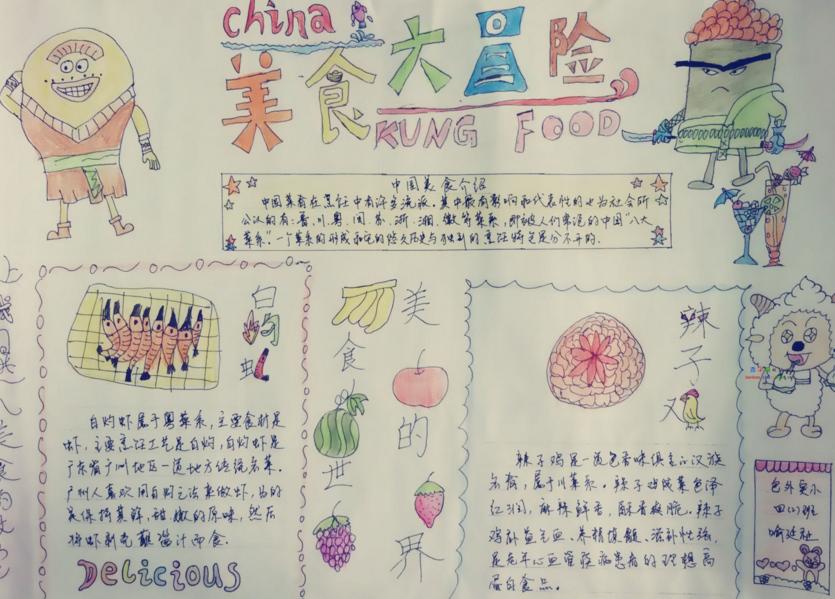 china
美食大冒险
KUNG FOOD
中国美食介绍
中国菜肴在烹饪中有许多流派。其中最有影响和代表性的也为社会所
公认的有:鲁、川、粤、闽、苏、浙、湘、徽等菜系,即被人们常说的中国“八大
菜系”。一个菜系的形成和它的悠久历史与独到的烹饪特色是分不开的。
白灼虾
白灼虾属于粤菜系,主要食材是
虾,主要烹饪工艺是白灼,白灼虾是
广东省广州地区一道地方传统名菜。
广州人喜欢用白灼之法来做虾,为的
是保持其鲜、甜、嫩的原味,然后
将虾剥壳蘸酱汁而食。
Delicious
美食的世界
辣子
辣子鸡是一道色香味俱全的汉族
名肴,属于川菜系。辣子鸡成菜色泽
红润,麻辣鲜香,酥香爽脆。辣子
鸡补益气血、养精填髓、滋补性强,
是老年心血管疾病患者的理想高
蛋白食品。